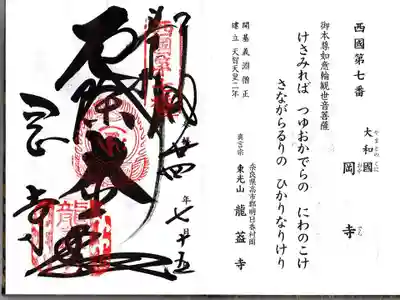 西國第七番
大和國
やまとのくに
岡寺
おかでら
御本尊如意輪観世音菩薩
けさみれば つゆおかでらの にわのこけ
さながらるりの ひかりなりけり
開基 義淵僧正
建立 天智天皇二年
奈良県高市郡明日香村岡
真言宗 東光山 龍蓋寺
西國第七番
年 七月十五
岡寺
龍